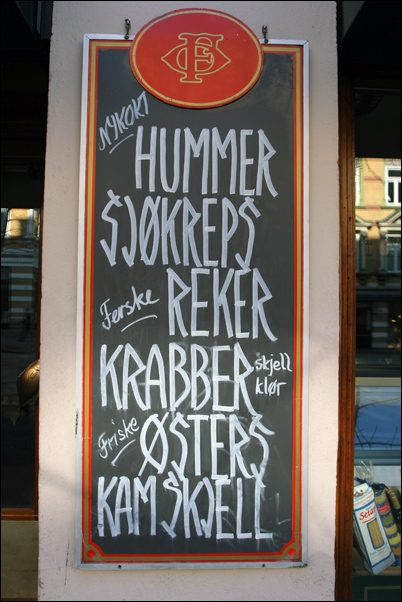 NYKOKT
HUMMER
SJØKREPS
Ferske REKER
KRABBER skjell
klør
Friske ØSTERS
KAMSKJELL